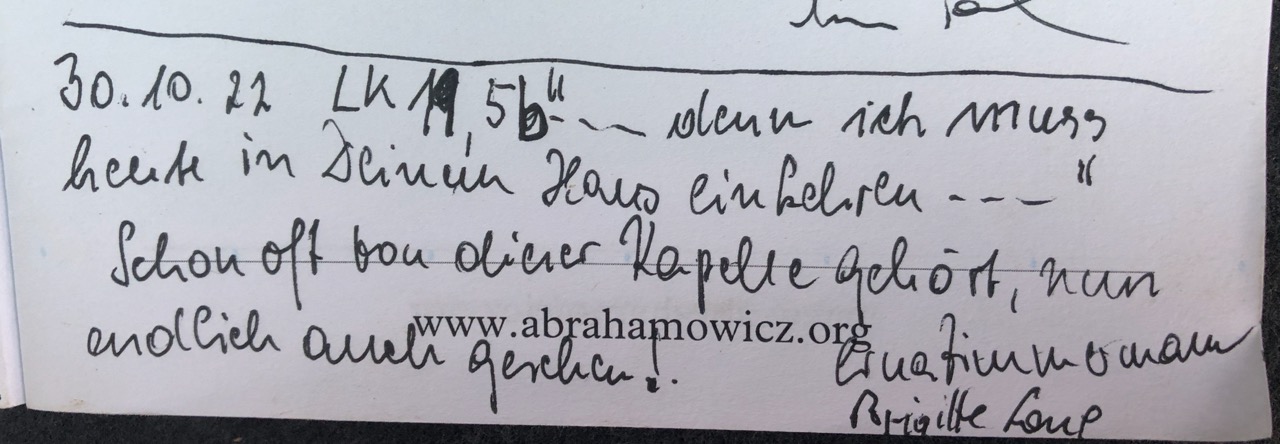 30.10.22 LK 19,5b "... denn ich muss
heute in Deinem Haus einkehren ---"
Schon oft von dieser Kapelle gehört, nun
endlich auch gesehen!
www.abrahamowicz.org
Brigitte